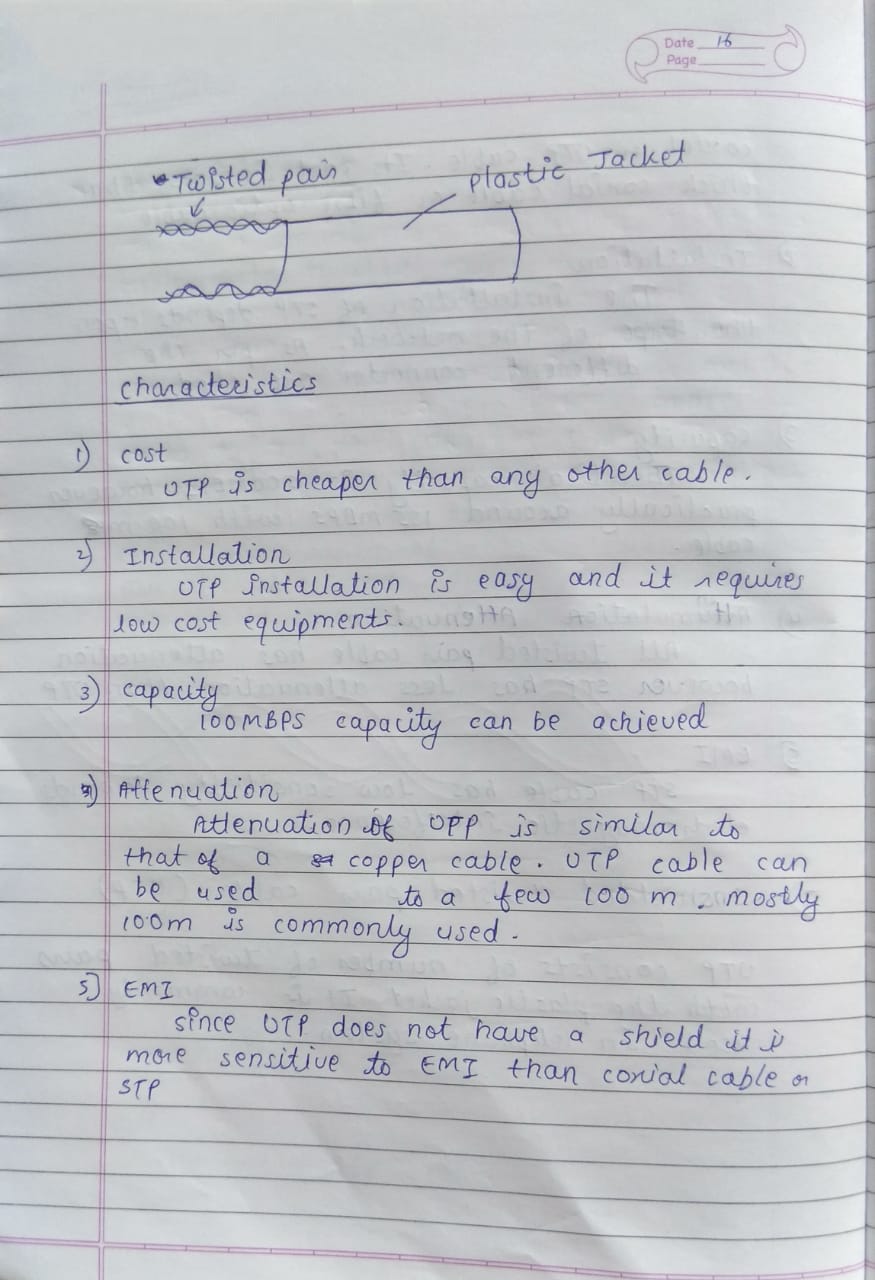 Date 16
Page
Twisted pair
plastic Jacket
characteristics
1) cost
UTP is cheaper than any other cable.
2) Installation
UTP installation is easy and it requires
low cost equipments.
3) capacity
100MBPS capacity can be achieved
4) Attenuation
Attenuation of UPP is similar to
that of a copper cable. UTP cable can
be used to a few 100 m. mostly
100m is commonly used.
5) EMI
since UTP does not have a shield it is
more sensitive to EMI than coxial cable or
STP